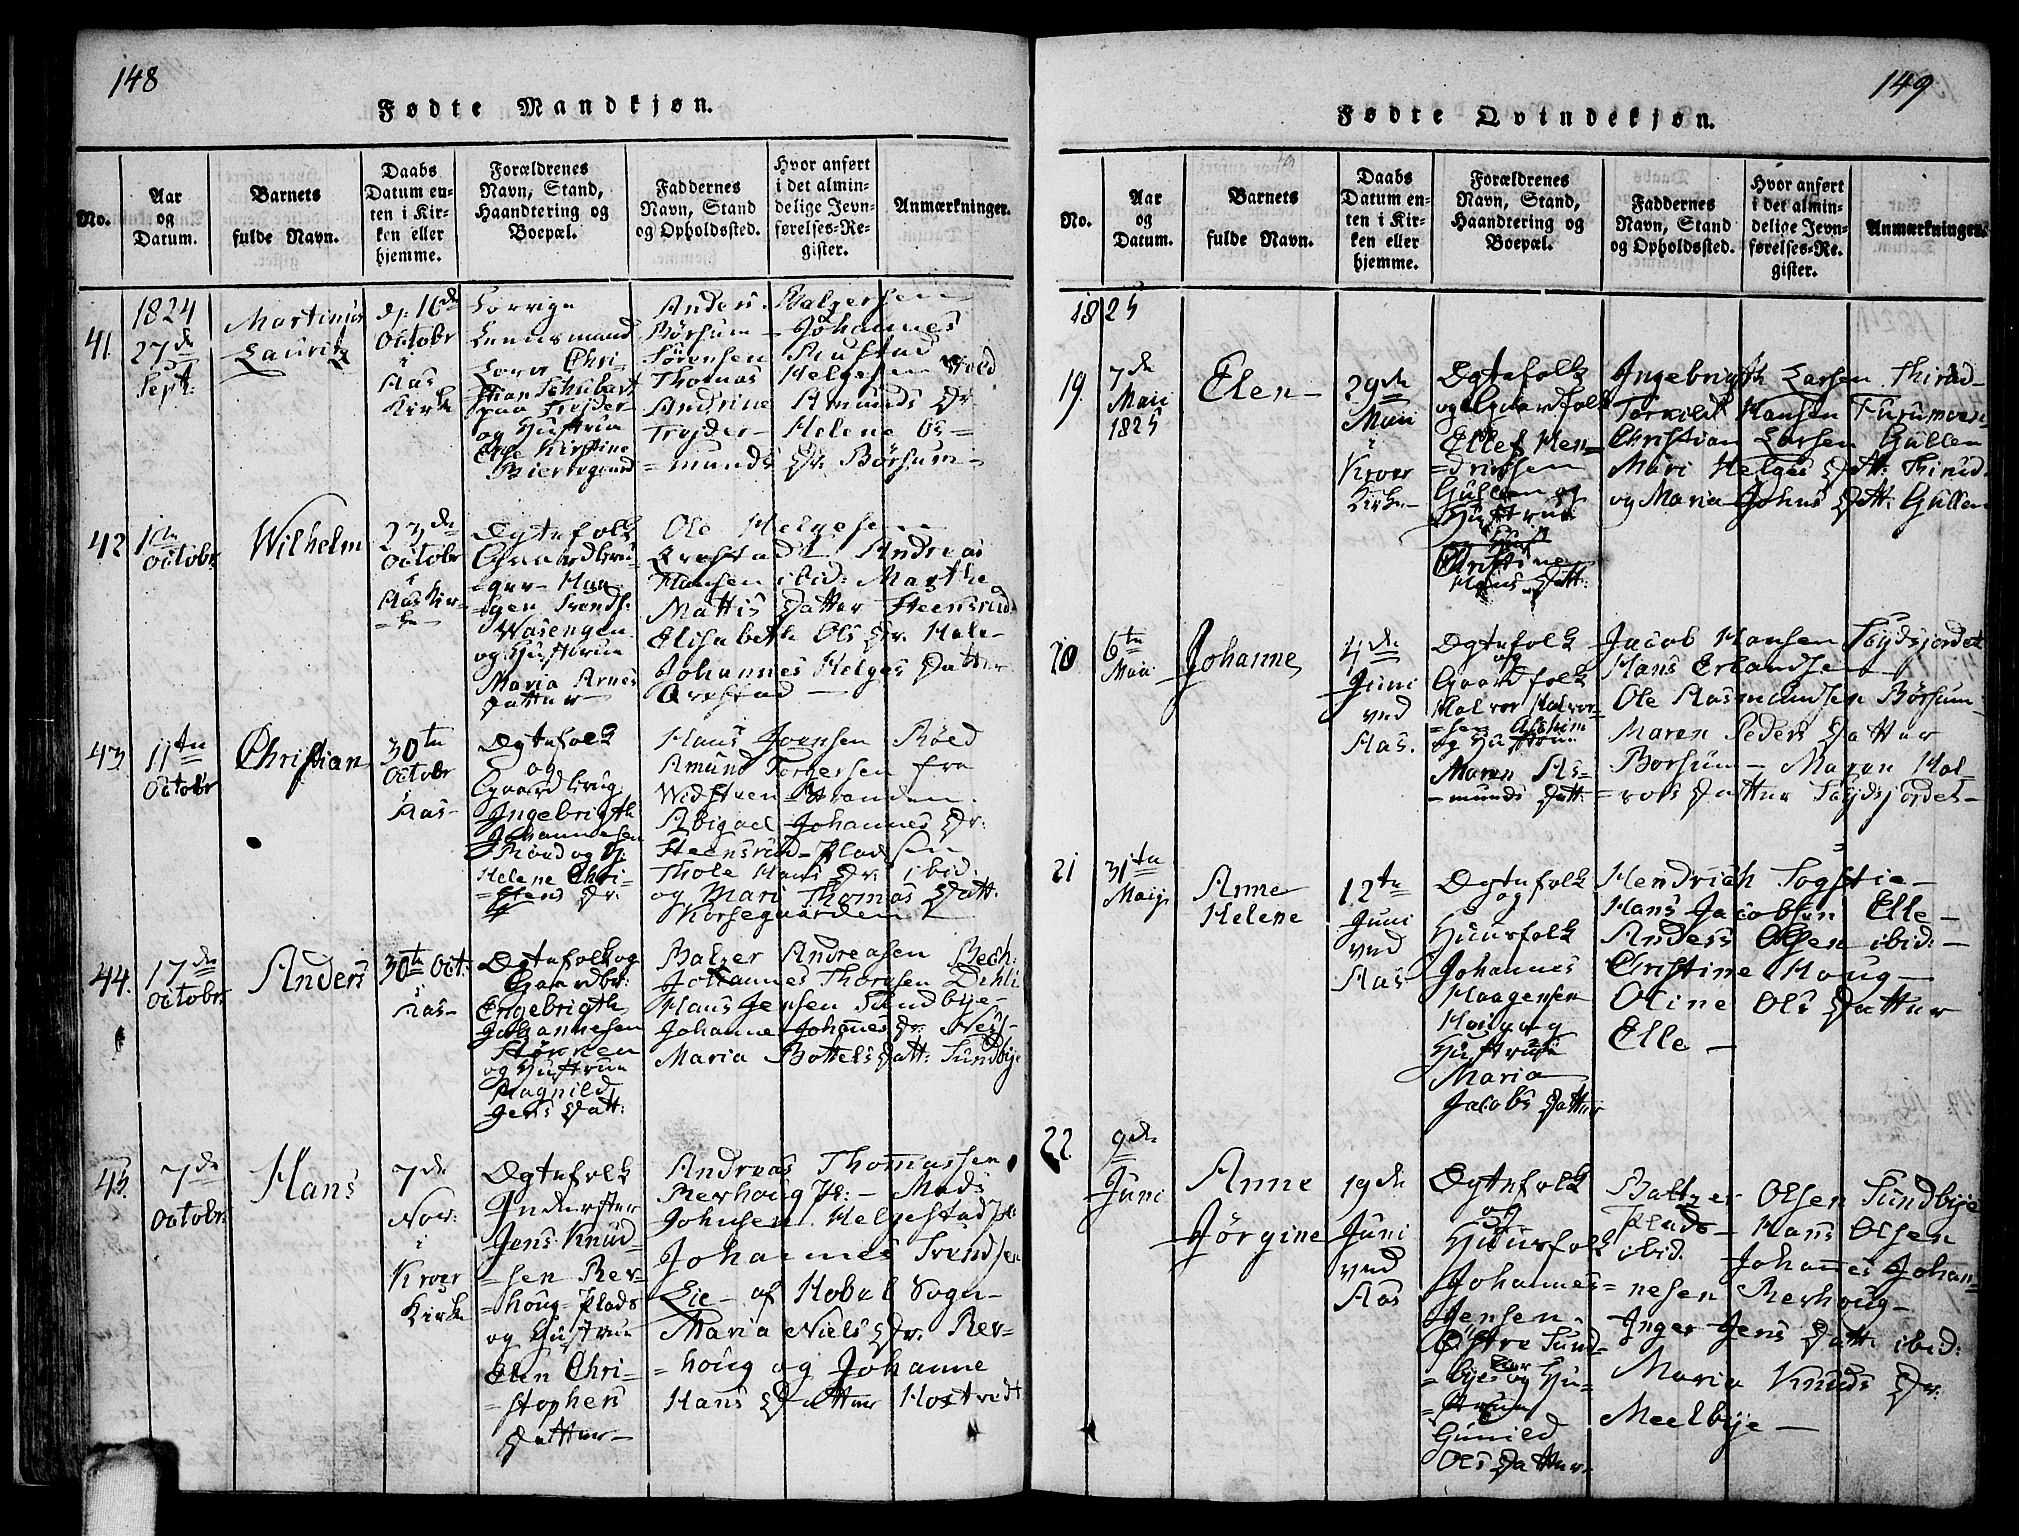 148
Fødte Mandkjøn.
No.
Aar
og
Datum.
Barnets
fulde Navn.
Daabs
Datum en-
ten i Kir-
ken eller
hjemme.
Forældrenes
Navn, Stand,
Haandtering og
Boepæl.
Faddernes
Navn, Stand
og Opholdssted.
Hvor anført
i det almin-
delige Jevn-
førelses-Re-
gister.
Anmærkninger.
41.
1824
27de
Sept:
Martinus
Lauritz
dp: 16de
Octobr
i
Aas
Kirke
Lennsmand
Chri-
stian Schubart
paa Trojder
og Hustrue
Else Kirstine
Bierkegaard
Anders Balzersen
Børsum - Johannes
Sörensen Rustad
Thomas Helgesen Wold
Andrine Amunds Dr
Trojder - Helene Os-
=munds Dr. Börsum -
42
1ste
Octobr.
Wilhelm
23de
Octobr
i
Aas Kir-
=ke
Ægtefolk
Gaardbru-
=ger - Haa-
=gen Svends:
Wasengen
og Hustrue
Maria Arnes
Datter
Ole Helgesen
Qvestad Andreas
Hansen ibid: Marthe
Mattis Datter Steensrud
Elisabeth Ols Dr. Hole-
Johannes Helges Datter
Qvestad
43
11te
Octobr
Christian
30te
Octobr
i
Aas-
Ægtefolk
og
Gaardbrug
Ingebrigth
Johannesen
Röed og H.
Helene Chri-
=stens Dr.
Hans Jvensen Röed
Amund Torgersen fra
Widsteen Stranden.
Abigael Johannes Dr:
Steensrud - Pladsen
Thole Hans Dr. ibid:
og Mari Thomas Datt:
Korsegaarden
44.
17de
Octobr.
Anders
30te Oct:
i
Aas-
Ægtefolk og
Gaardbr:
Engebrigth
Johannesen
Störken
og Hustrue
Ragnild
Jens Datt:
Balzer Andreasen Bech:
Johannes Thoresen Dehli
Hans Jensen Sundbye-
Johanne Johanes Dr. Ness-
Maria Bottels Datt: Sundbye
45.
7de
Octobr.
Hans
7de
Nov:
i
Kroer
Kirke
Ægtefolk
Inderster
Jens Knud-
=sen Rer-
=houg - Plads
og Hustrue
Elen Chri-
=stophers
Datter-
Andreas Thomassen
Rerhoug Pl:- Mads
Johnsen Helgestad
Johannes Svendsen
Lie - af Hobøl Sogn-
Maria Niels Dr. Rer-
=houg og Johanne
Hans Datter Hostvedt
149
Fødte Qvindekjøn.
No.
Aar
og
Datum.
Barnets
fulde Navn.
Daabs
Datum en-
ten i Kir-
ken eller
hjemme.
Forældrenes
Navn, Stand,
Haandtering og
Boepæl.
Faddernes
Navn, Stand
og Opholdssted.
Hvor anført
i det almin-
delige Jevn-
førelses-Re-
gister.
Anmærkninger.
1825
19.
7de
Maii
1825
Elen-
29de
Maii
i
Kroer
Kirke-
Ægtefolk
og Gaardfolk
Ellef Hen-
=drichsen
Gullen og
Hustrue
Christine
Hans Datt:
Ingebrigth Larsen Thirud-
Torkild Hansen Furumoen
Christian Larsen Gullen
Mari Helges Datt: Thirud.
og Maria Johns Datt: Gullen
20
6te
Maii
Johanne
4de
Juni
ved
Aas.
Ægtefolk
og
Gaardfolk
Halvor Halvor-
=sen
og Hustrue
Maren As-
=munds Datt:
Jacob Hansen Togdsjordet
Hans Erlandsen
Ole Aasmundsen Börsum-
Maren Peders Datter
Borsum - Maren Hal-
=vors Datter Togdsjordet-
21
31te
Maij.
Anne
Helene
12te
Juni
ved
Aas
Ægtefolk
og
Huusfolk
Johannes
Haagensen
Houg og
Hustrue
Maria
Jacobs Datter
Hendrich Togstie-
Hans Jacobsen Elle-
Anders Olsen ibid:-
Christine Houg-
Oline Ols Datter
Elle -
22.
9de
Juni
Anne
Jørgine
19de
Juni
ved
Aas
Ægtefolk
og
Huusfolk
Johannes
Jensen.
Østre Sund-
=byeier og Hu-
=strue
Gunild
Ols Datter-
Baltzer Olsen Sundbye
Plads - Hans Olsen
ibid. Johannes Johan-
=nesen Rerhoug-
Inger Jens Datt: ibid:
Maria Knuds Dr:
Meelbye-